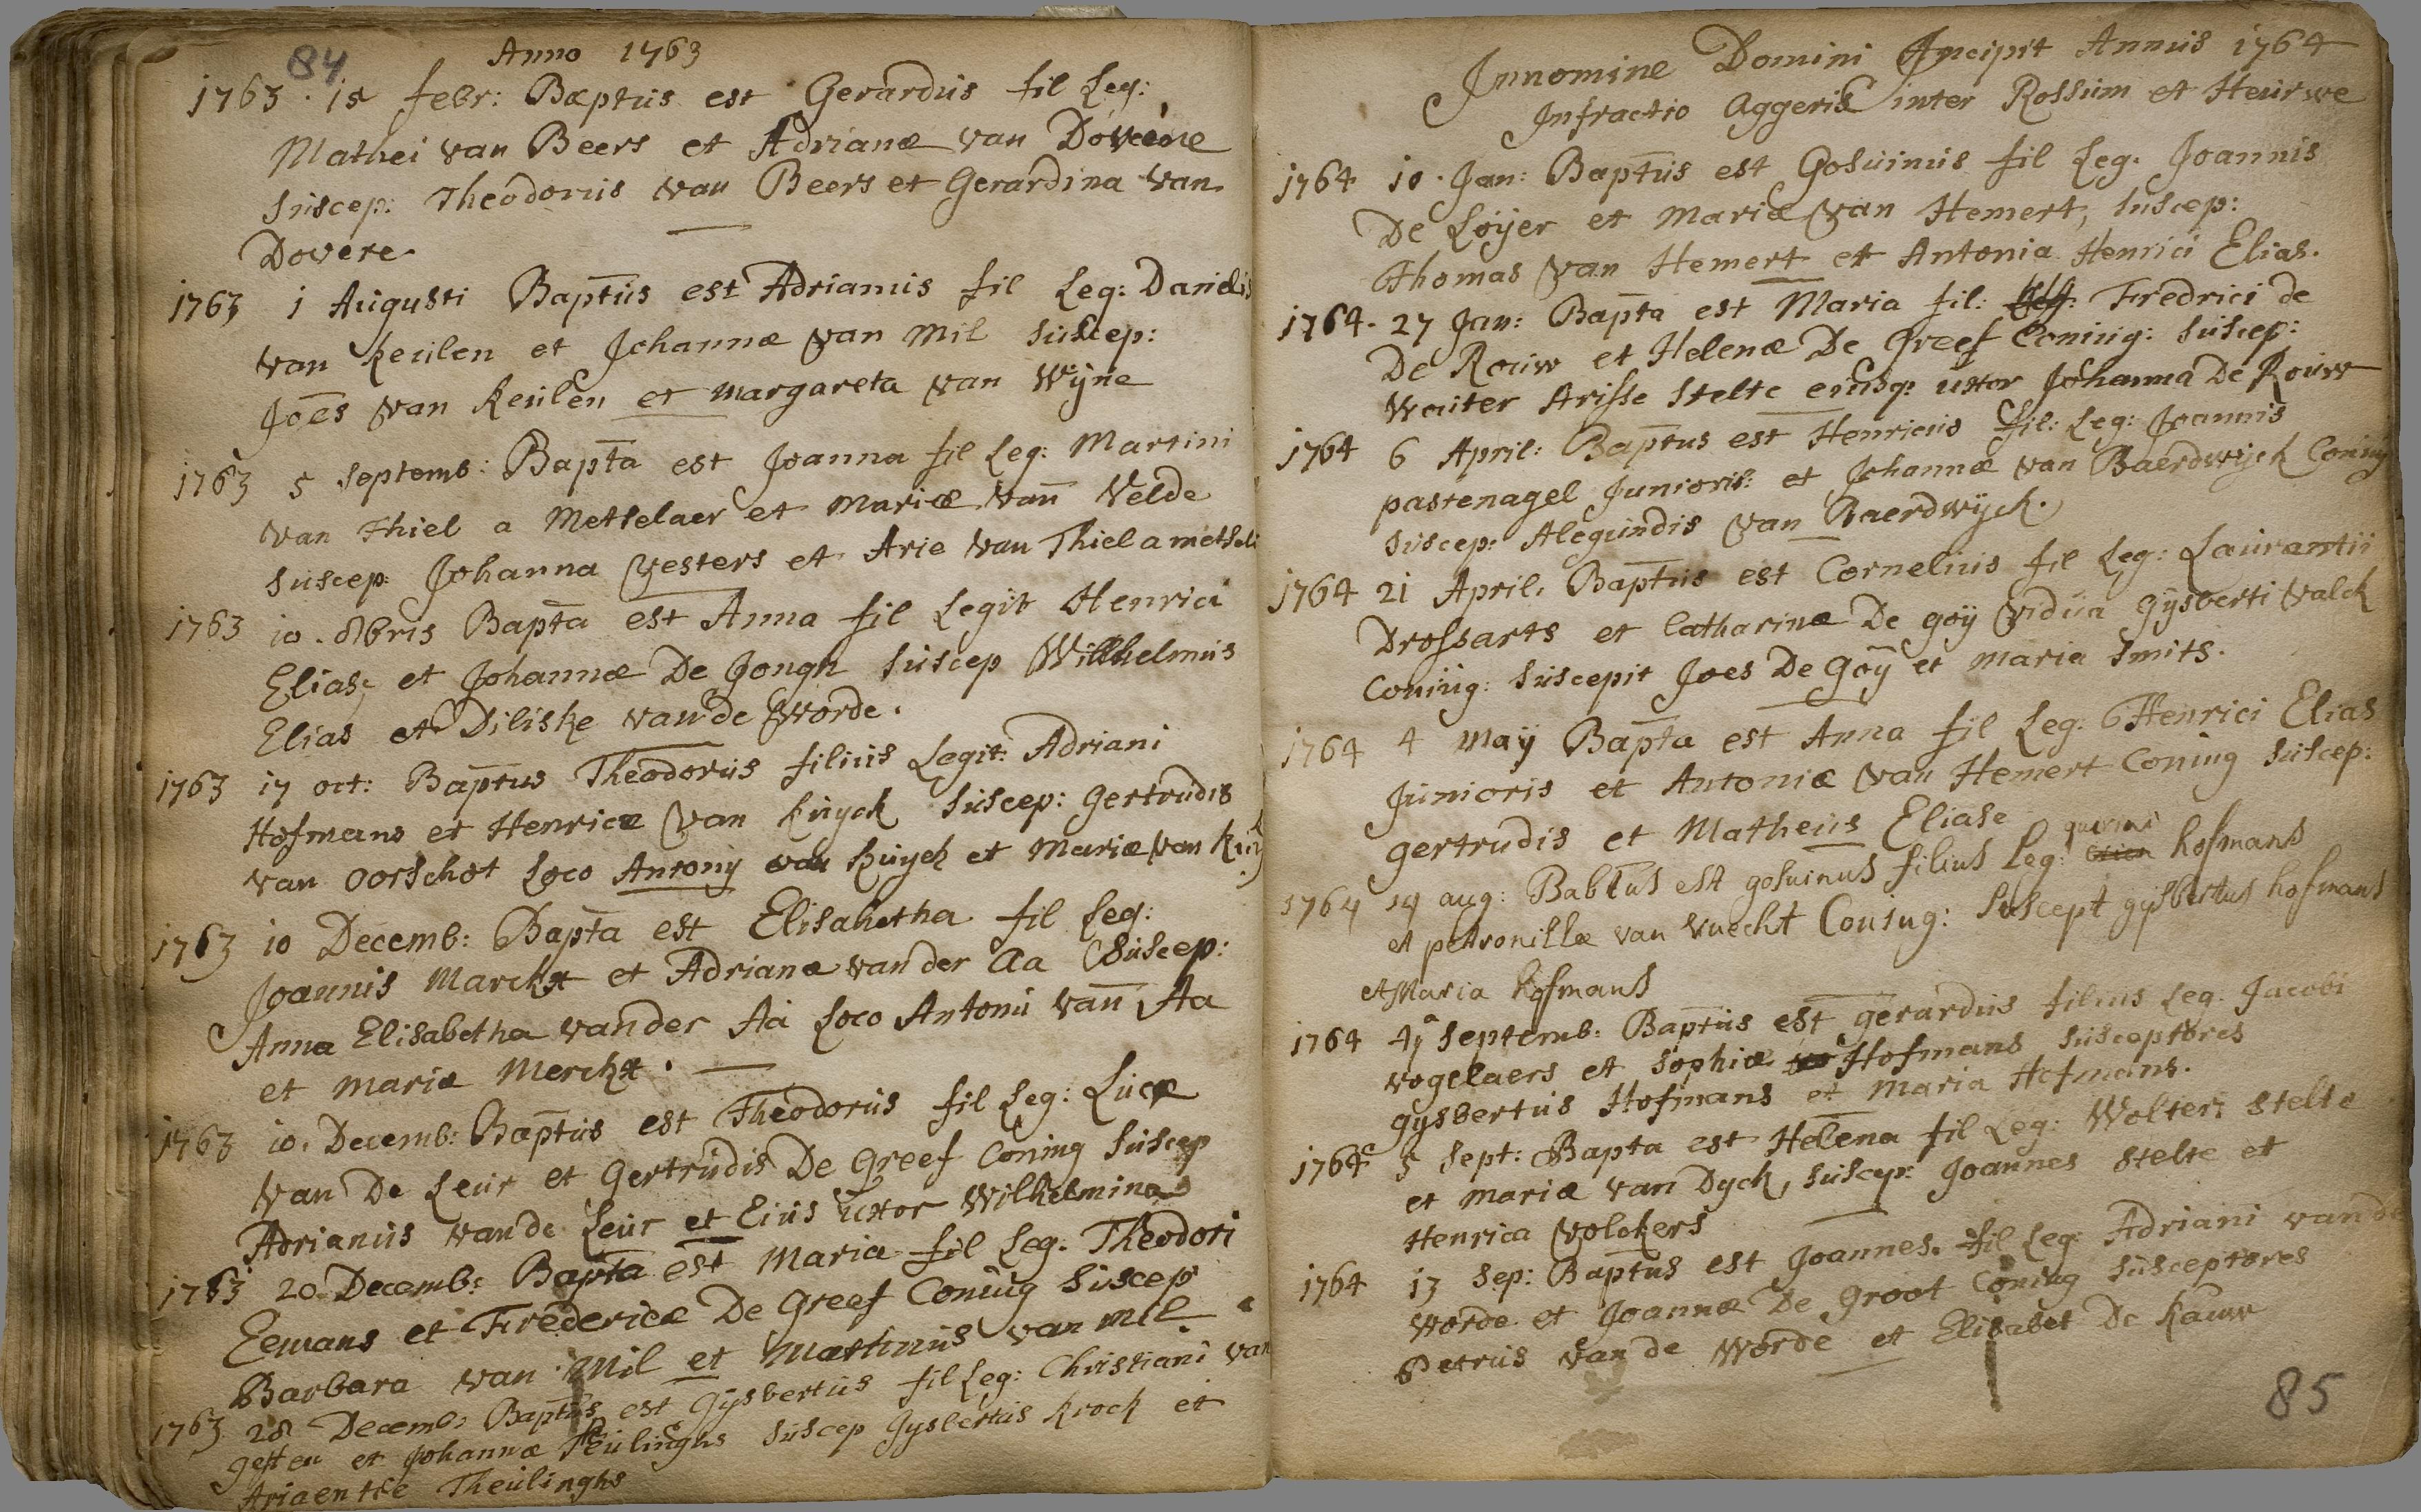 84
Anno 1763
1763 · 15 febr: Baptus est Gerardus fil Leg:
Mathei van Beers et Adrianæ van Dovere
Suscep: Theodorus van Beers et Gerardina van
Dovere.
1763 1 Augusti Baptus est Adrianus fil Leg: Danielis
van keulen et Johannæ van Mil Suscep:
Joes van keulen et Margareta van Wÿne
1763 5 Septemb: Bapta est Joanna fil Leg: Martini
van Thiel a Metselaer et Mariæ van Velde
Suscep: Johanna Vesters et Arie van Thiel a
1763 10. 8bris Bapta est Anna fil Legit Henrici
Elias et Johannæ De Jongh Suscep Willhelmus
Elias et Diliske van de Worde.
1763 17 oct: Baptus Theodorus filius Legit: Adriani
Hofmans et Henricæ van kuyck Suscep: gertrudis
van oorschot Loco Antonÿ van kuyck et Mariæ van
1763 10 Decemb: Bapta est Elisabetha fil Leg:
Joannis Marckx et Adrianæ vander Aa Suscep:
Anna Elisabetha vander Aa Loco Antonii van Aa
et Mariæ Merckx.
1763 10. Decemb: Baptus est Theodorus fil Leg: Lucæ
van De Leur et Gertrudis De Greef Coning Suscep
Adrianus van de Leur et Eius uxor Wilhelmina
1763 20 Decemb: Bapta est Maria fil Leg: Theodori
Eemans et Fredericæ De Greef Coniug Suscep
Barbara van Mil et Martinus van Mil
1763 28 Decemb: Baptus est Gÿsbertus fil Leg: Christiani van
gesten et Johannæ Theulinghs Suscep Gÿsbertus krock et
Ariaentie Theulinghs
Innomine Domini Incipit Annus 1764
Infractio Aggeris inter Rossum et Heurwe
1764 10 · Jan: Baptus est Gosuinus fil Leg. Joannis
De Loÿer et Mariæ van Hemert, Suscep:
Thomas van Hemert et Antonia Henrici Elias.
1764 · 27 Jan: Bapta est Maria fil: Leg: Fredrici de
De Rouw et Helenæ De Greef Coniug: Suscep:
Wouter Arisse Stelte eiusq: uxor Johanna De Rouw
1764 6 April: Baptus est Henricus fil: Leg: Joannis
pastenagel Junioris: et Johannæ van Baerdwÿck Coniug
Suscep: Alegundis van Baerdwÿck.
1764 21 April. Baptus est Cornelius fil Leg: Laurantii
Drossarts et Catharinæ De goÿ vidua gÿsberti valck
Coniug: Suscepit Joes De Goÿ et Maria Smits.
1764 4 maÿ Bapta est Anna fil Leg: Henrici Elias
Junioris et Antoniæ van Hemert Coning Suscep:
gertrudis et Matheus Eliase
1764 14 aug: Babtus est gosuinus filius Leg: hofmans
et petronillæ van vuecht Coniug: Suscept gijsbertus hofmans
et Maria hofmans
1764 Septemb: Baptus est gerardus filius Leg. Jacobi
vogelaers et Sophiæ Hofmans Susceptores
gÿsbertus Hofmans et Maria Hofmans.
1764 5 Sept: Bapta est Helena fil Leg: Wolteri Stelte
et Mariæ van Dyck, Suscep: Joannes Stelte et
Henrica Volckers
1764 13 Sep: Baptus est Joannes. fil Leg: Adriani van de
Worde et Joannæ De Groot Coniug Susceptores
Petrus van de Worde et Elisabet De kauw
85